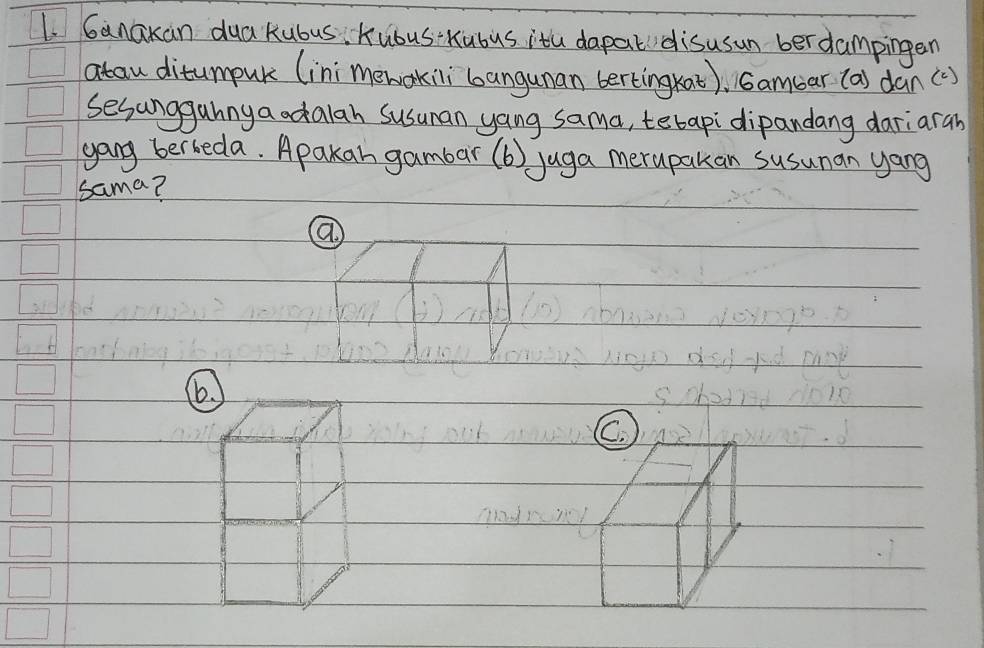 1. Gunakan dua kubus. Kubus-kubus itu dapat disusun berdampingan
atau ditumpuk (ini mewakili bangunan bertingkat). Gambar (a) dan (c)
Sesungguhnya adalah susunan yang sama, tetapi dipandang dari arah
yang berbeda. Apakah gambar (b) juga merupakan susunan yang
sama?
a.
b.
c.